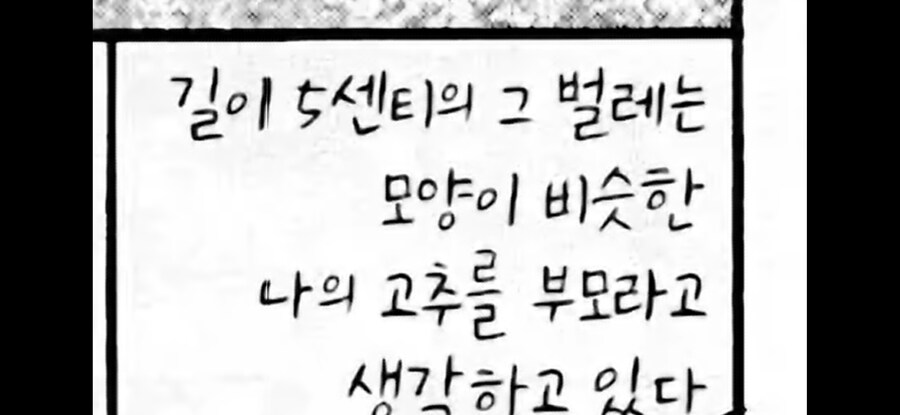 길이 5센티의 그 벌레는
모양이 비슷한
나의 고추를 부모라고
생각하고 있다